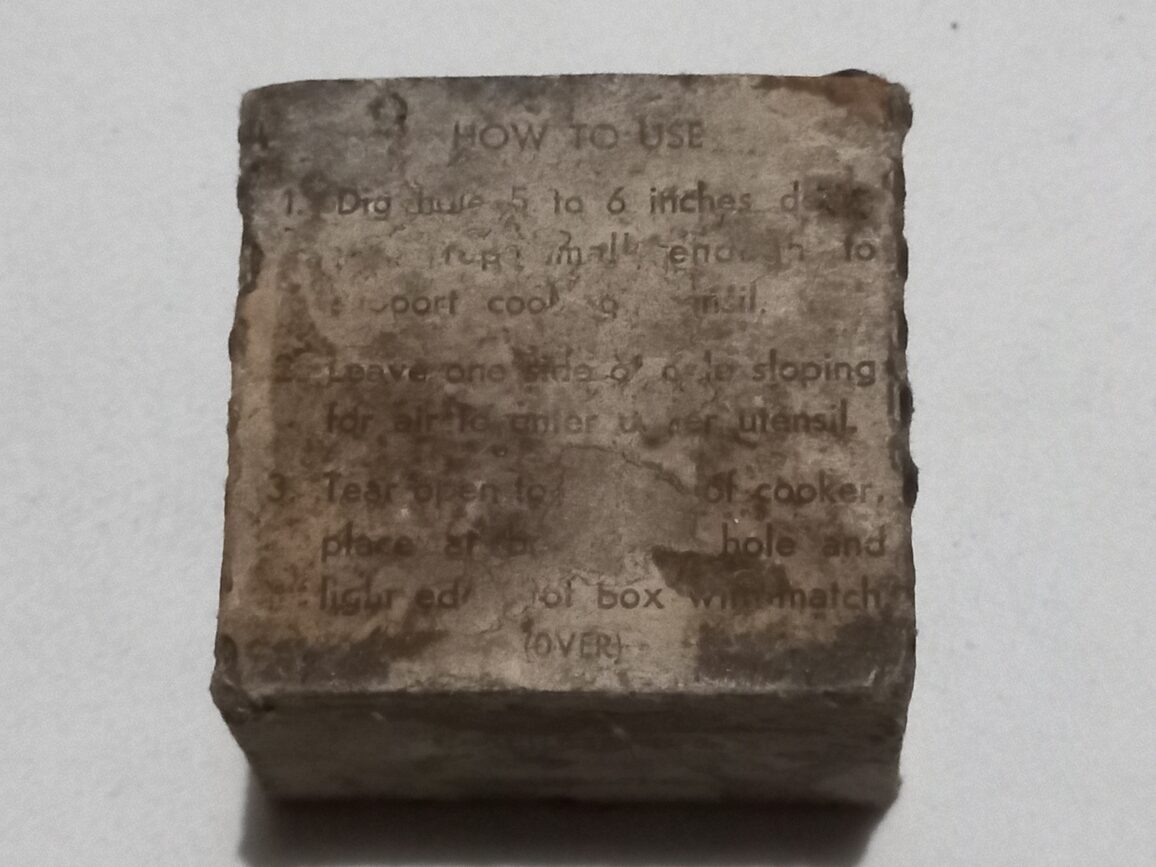 HOW TO USE
1. Dig hole 5 to 6 inches
enough to
support cooking utensil.
2. Leave one side of hole sloping
for air to enter under utensil.
3. Tear open of cooker,
place at hole and
light of box with match
(OVER)